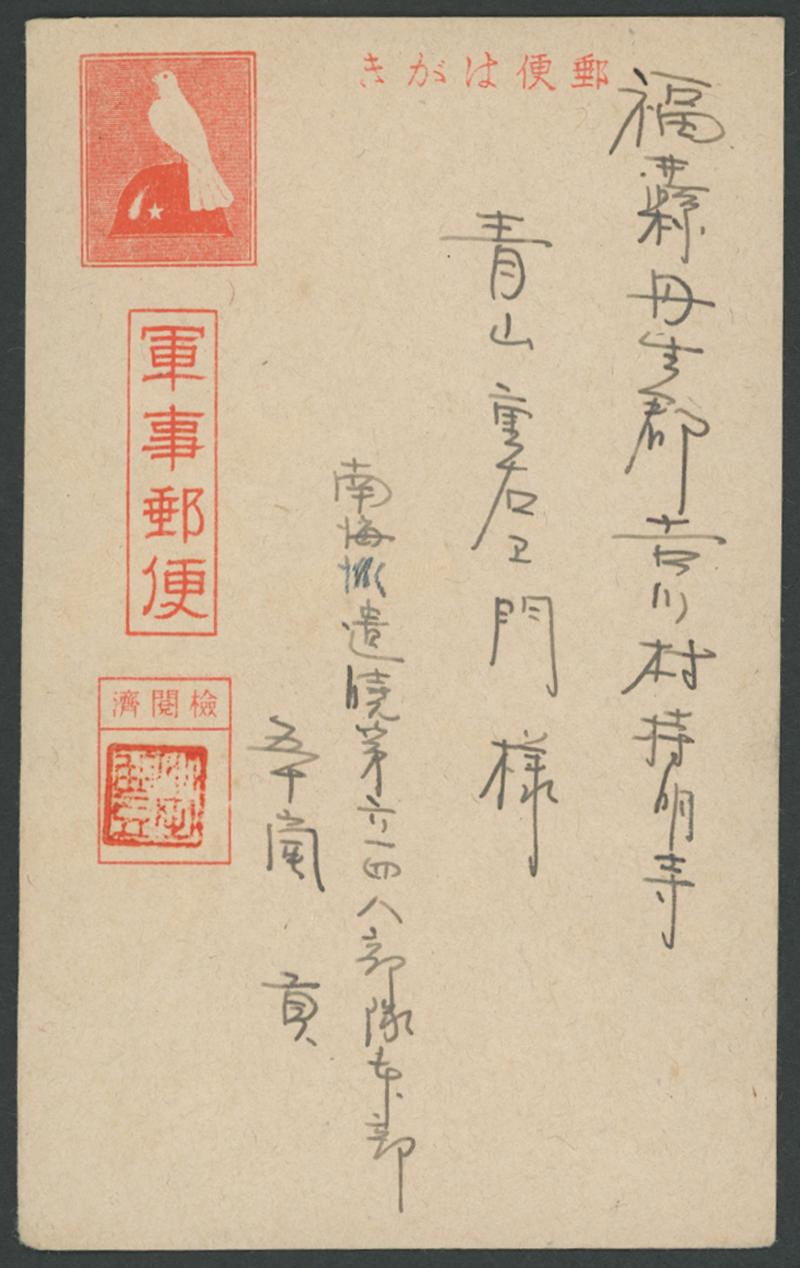 郵便はがき
福井縣丹生郡吉川村持明寺
青山重右エ門様
南海派遣暁第六一四八部隊本部
五十嵐 貢
軍事郵便
檢閲濟